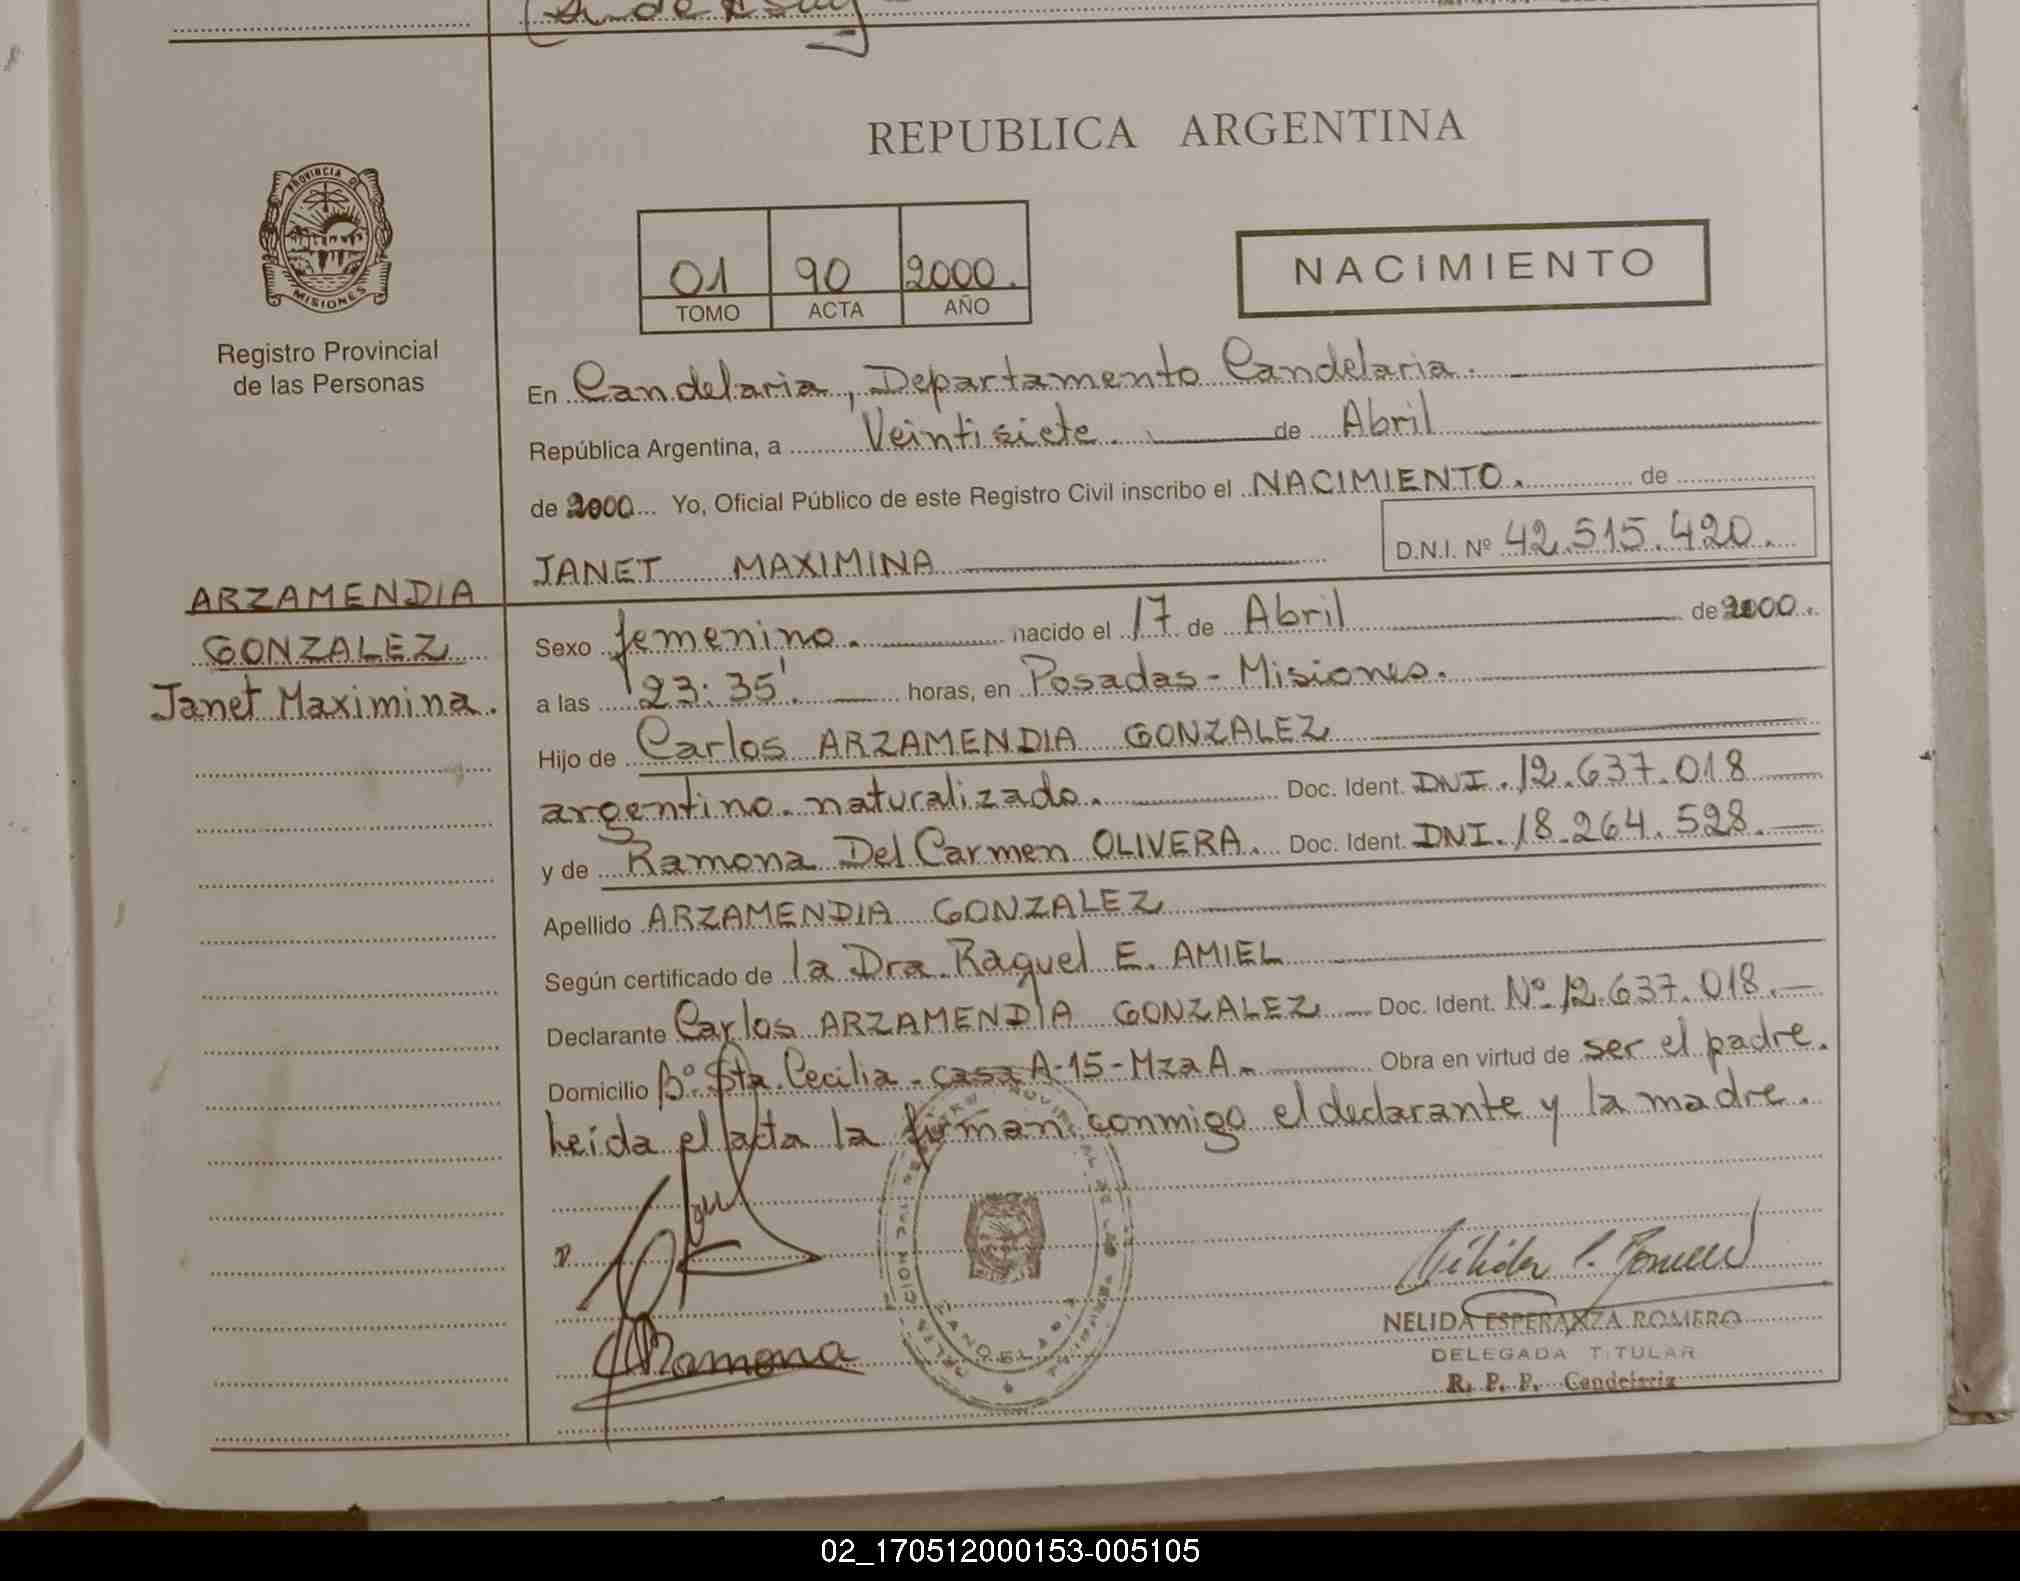 REPUBLICA ARGENTINA
PROVINCIA DE
MISIONES
Registro Provincial
de las Personas
01 90 2000.
TOMO ACTA AÑO
NACIMIENTO
En Candelaria, Departamento Candelaria.
República Argentina, a Veintisiete. de Abril
de 2000 Yo, Oficial Público de este Registro Civil inscribo el NACIMIENTO. de
JANET MAXIMINA D.N.I. Nº 42.515.420.
ARZAMENDIA
GONZALEZ
Janet Maximina.
Sexo femenino. nacido el 17 de Abril de 2000.
a las 23:35'. horas, en Posadas - Misiones.
Hijo de Carlos ARZAMENDIA GONZALEZ
argentino naturalizado. Doc. Ident. DNI. 12.637.018
y de Ramona Del Carmen OLIVERA. Doc. Ident. DNI. 18.264.528.
Apellido ARZAMENDIA GONZALEZ
Según certificado de la Dra. Raquel E. AMIEL
Declarante Carlos ARZAMENDIA GONZALEZ Doc. Ident. Nº 12.637.018.
Domicilio Bº Sta. Cecilia - casa A-15 - Mza A. Obra en virtud de ser el padre.
Leída el acta la firman conmigo el declarante y la madre.
Ramona
NELIDA ESPERANZA ROMERO
DELEGADA TITULAR
R. P. P. Candelaria
02_170512000153-005105